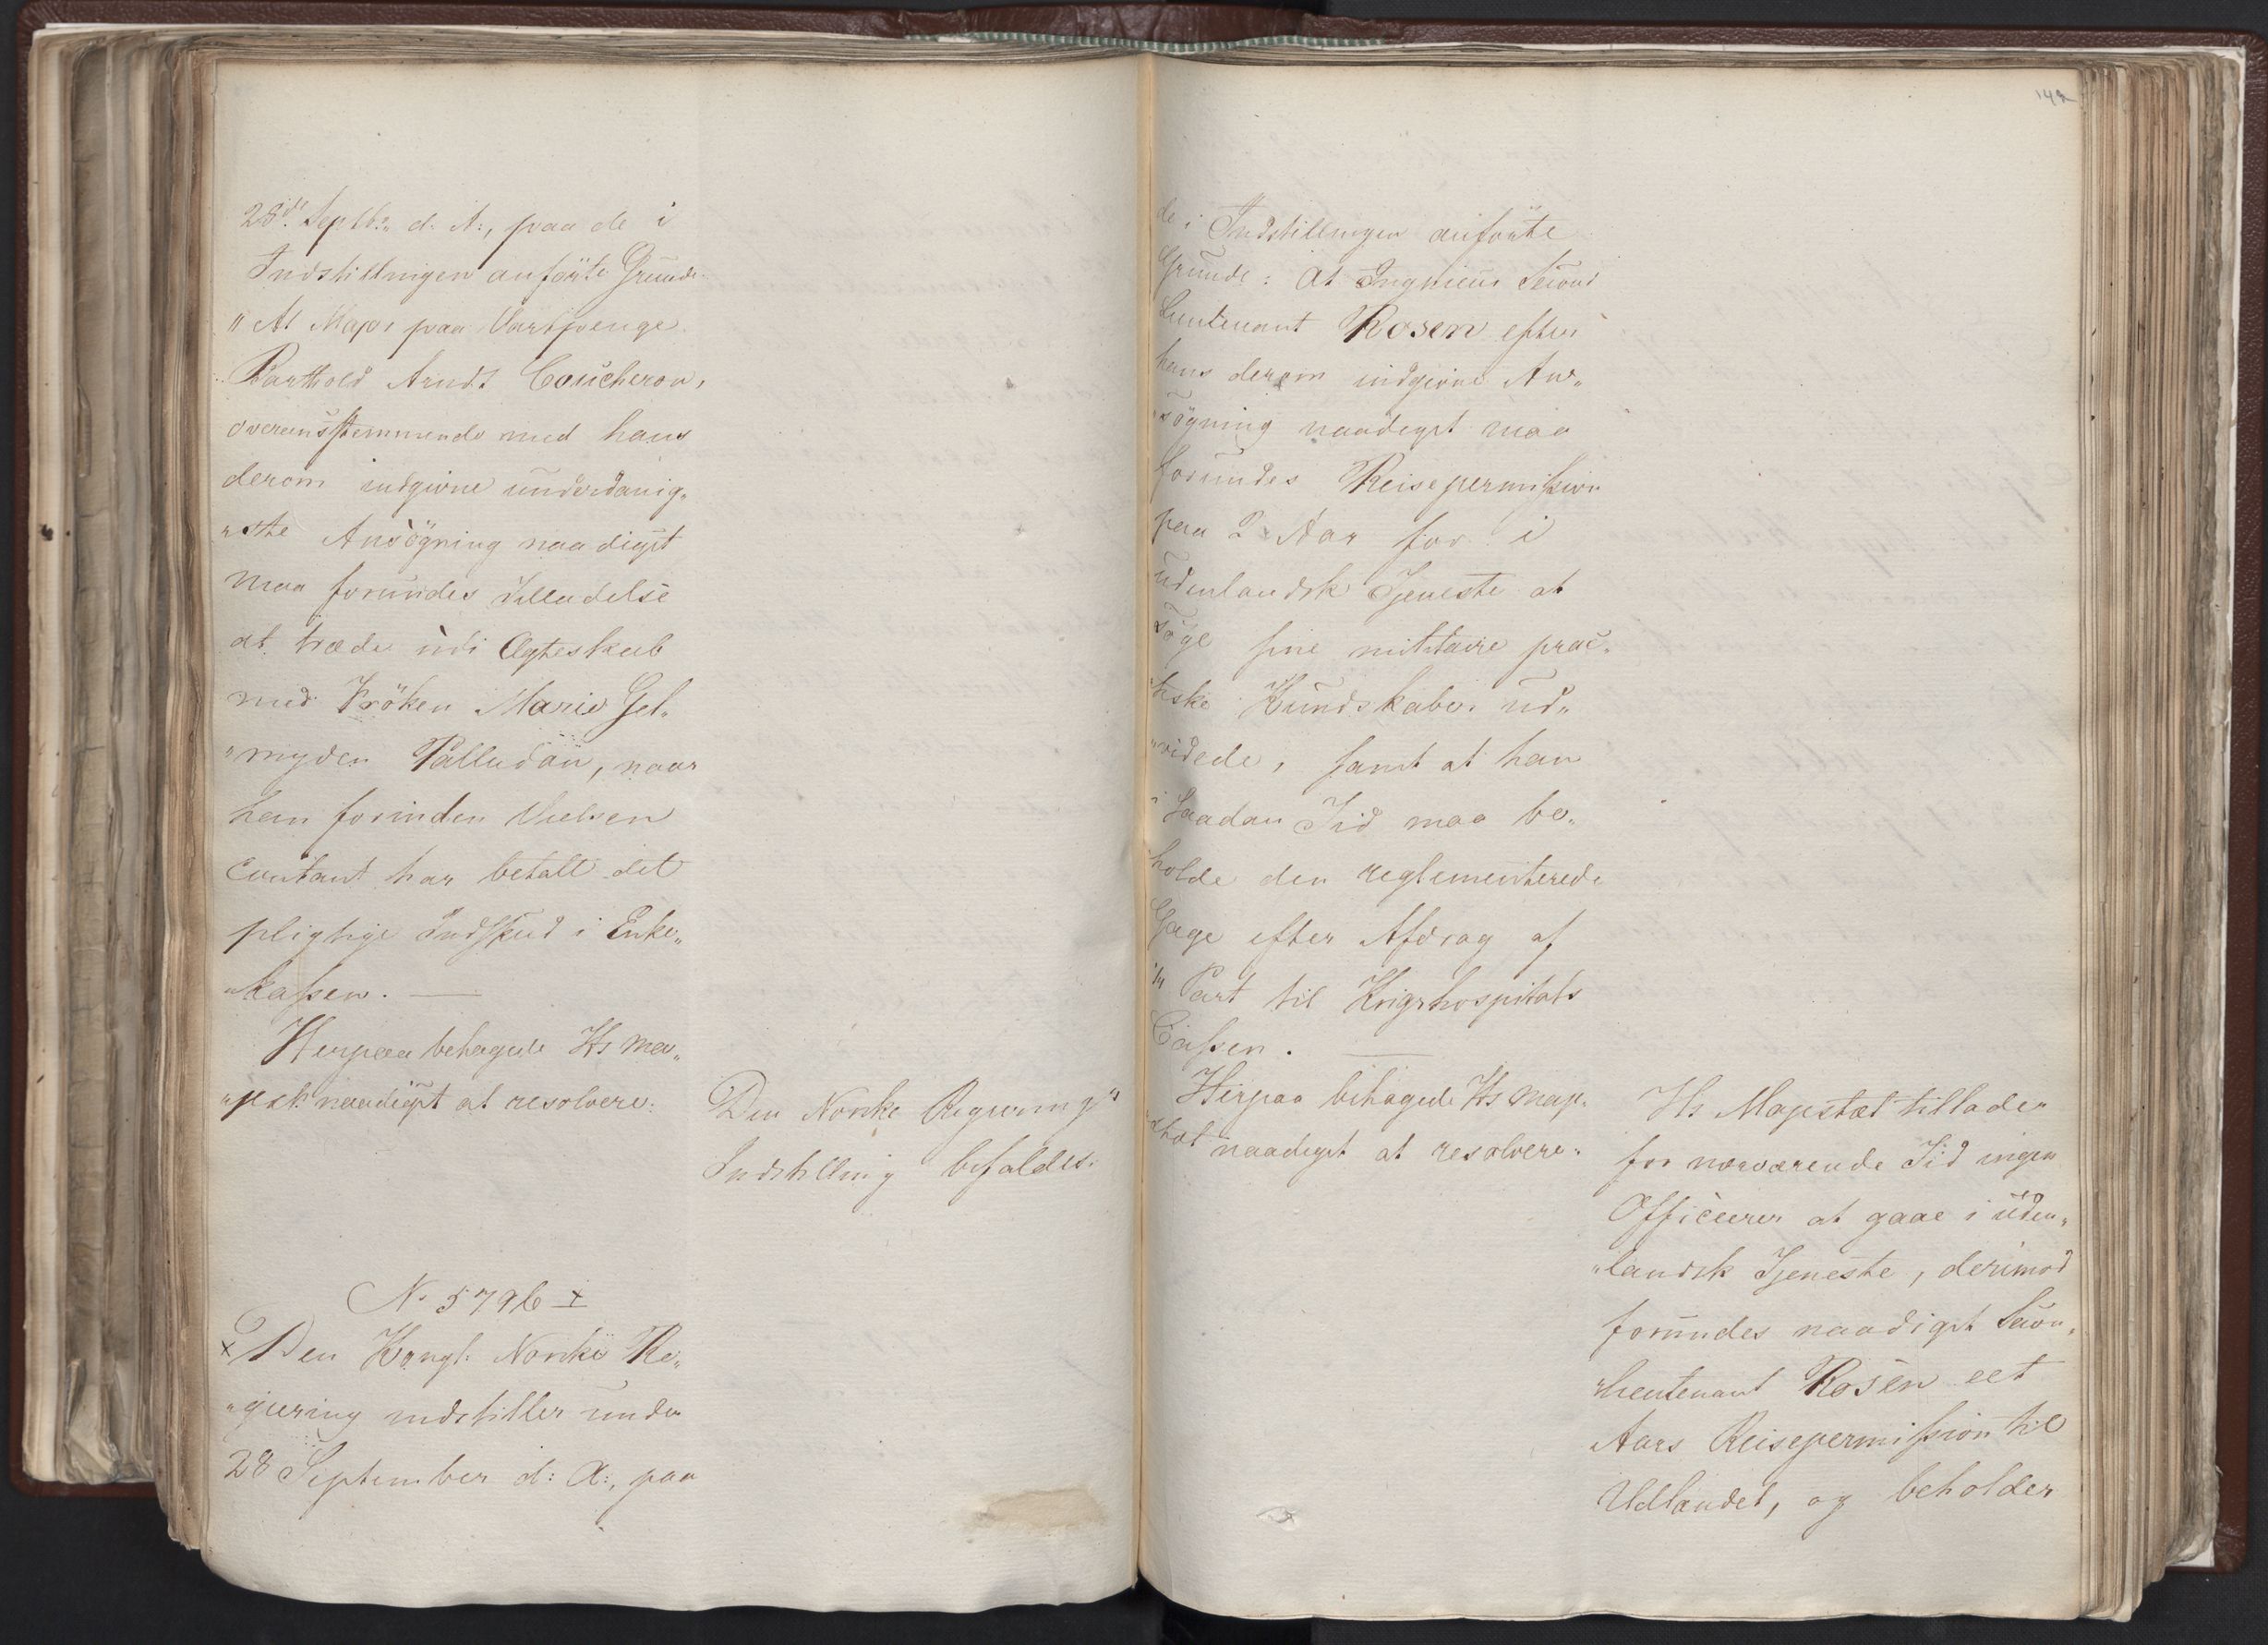 28de Septbr. d. A:, paa de i
Indstillingen anförte Grunde
" At Major paa Vartpenge
Barthold Arndt Coucheron,
overeensstemmende med hans
derom indgivne underdanig„
„ste Ansögning naadigst
maa forundes Tilladelse
at træde udi Ægteskab
med Fröken Marie Gel„
„myden Palludan, naar
han forinden Vielsen
contant har betalt det
pligtige Indskud i Enke„
„kassen. —
Herpaa behagede Hs Ma„
„jest: naadigst at resolvere:
Den Norske Regierings
Indstilling bifaldes.
N. 5796 +
+ Den Kongl. Norske Re„
„giering indstiller under
28 September d: A:, paa
142
de i Indstillingen anförte
Grunde: At Ingenieur Second
Lieutenant Rosen efter
hans derom indgivne An„
„sögning naadigst maa
forundes Reisepermission
paa 2 Aar for i
udenlandsk Tjeneste at
söge sine militaire prac„
„tiske Kundskaber ud„
„videde, samt at han
i saadan Tid maa be„
holde den reglementerede
Gage efter Afdrag af
Part til Krigshospitals
Cassen. —
Herpaa behagede Hs Maje„
„stæt naadigst at resolvere:
Hs Majestæt tillader
for nærværende Tid ingen
Officeerer at gaae i uden„
„landsk Tjeneste, derimod
forundes naadigst Secon„
„lieutenant Rosen eet
Aars Reisepermission til
Udlandet, og beholder